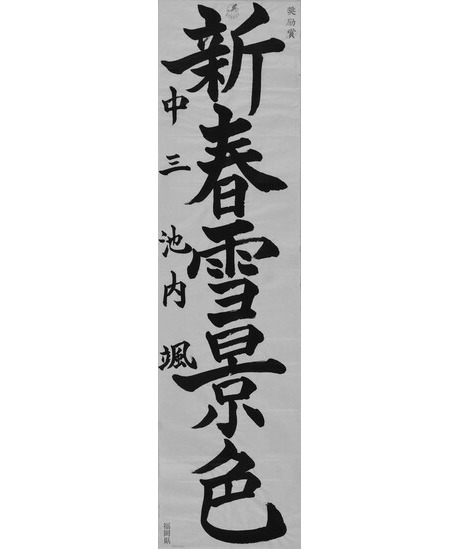 奨励賞
新春雪景色
中三 池内颯
福岡県